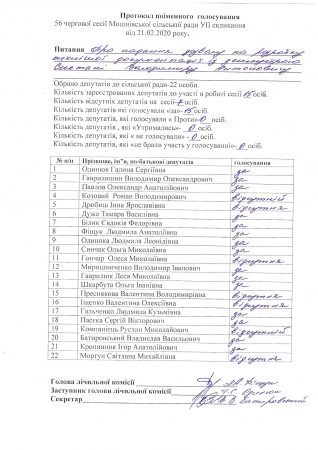 Протокол поіменного голосування
56 чергової сесії Мошнівської сільської ради УІІ скликання
від 21.02.2020 року.
Питання Про надання дозволу на розробку
технічної документації із землеустрою
Систалі Володимиру Антоновичу
Обрано депутатів до сільської ради-22 особи.
Кількість зареєстрованих депутатів до участі в роботі сесії 15 осіб.
Кількість відсутніх депутатів на сесії-7 осіб.
Кількість депутатів, які голосували «за»-15 осіб.
Кількість депутатів, які голосували « Проти»-0 осіб.
Кількість депутатів , які «Утримались»- 0 осіб.
Кількість депутатів, які « не голосували» -0 осіб.
Кількість депутатів, які «не брали участь у голосуванні»- 0 осіб.
№ п/п Прізвище, ім"я, по-батькові депутатів голосування
1 Одинюк Галина Сергіївна за
2 Гаврилишин Володимир Олександрович за
3 Павлов Олександр Анатолійович за
4 Козовий Роман Володимирович відсутній
5 Дробиш Інна Ярославівна відсутня
6 Дужа Тамара Василівна за
7 Білик Євдокія Федорівна за
8 Фіщук Людмила Анатоліївна за
9 Одинока Людмила Леонідівна за
10 Синчак Ольга Миколаївна за
11 Гончар Олеся Миколаївна відсутня
12 Мирошниченко Володимир Іванович за
13 Гаврилюк Леся Миколаївна за
14 Шкарбута Ольга Іванівна за
15 Преснякова Валентина Володимирівна відсутня
16 Іщенко Валентина Олексіївна відсутня
17 Гальченко Людмила Кузьмівна за
18 Пасєка Сергій Вікторович за
19 Компанієць Руслан Миколайович відсутній
20 Батировський Владислав Васильович за
21 Кропивник Ігор Анатолійович за
22 Моргун Світлана Михайлівна відсутня
Голова лічильної комісії Фіщук
Заступник голови лічильної комісії
Секретар Батировський